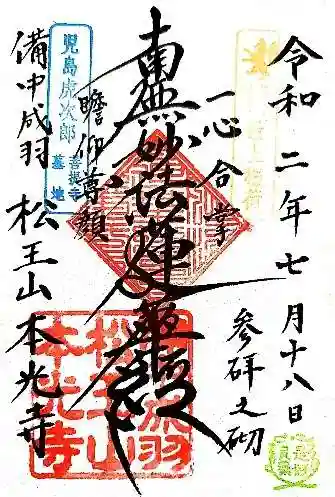 令和二年七月十八日
参研之砌
一心合掌
南無妙法蓮華経
瞻仰尊顔
児島虎次郎
菩提寺
墓地
備中成羽 松王山本光寺